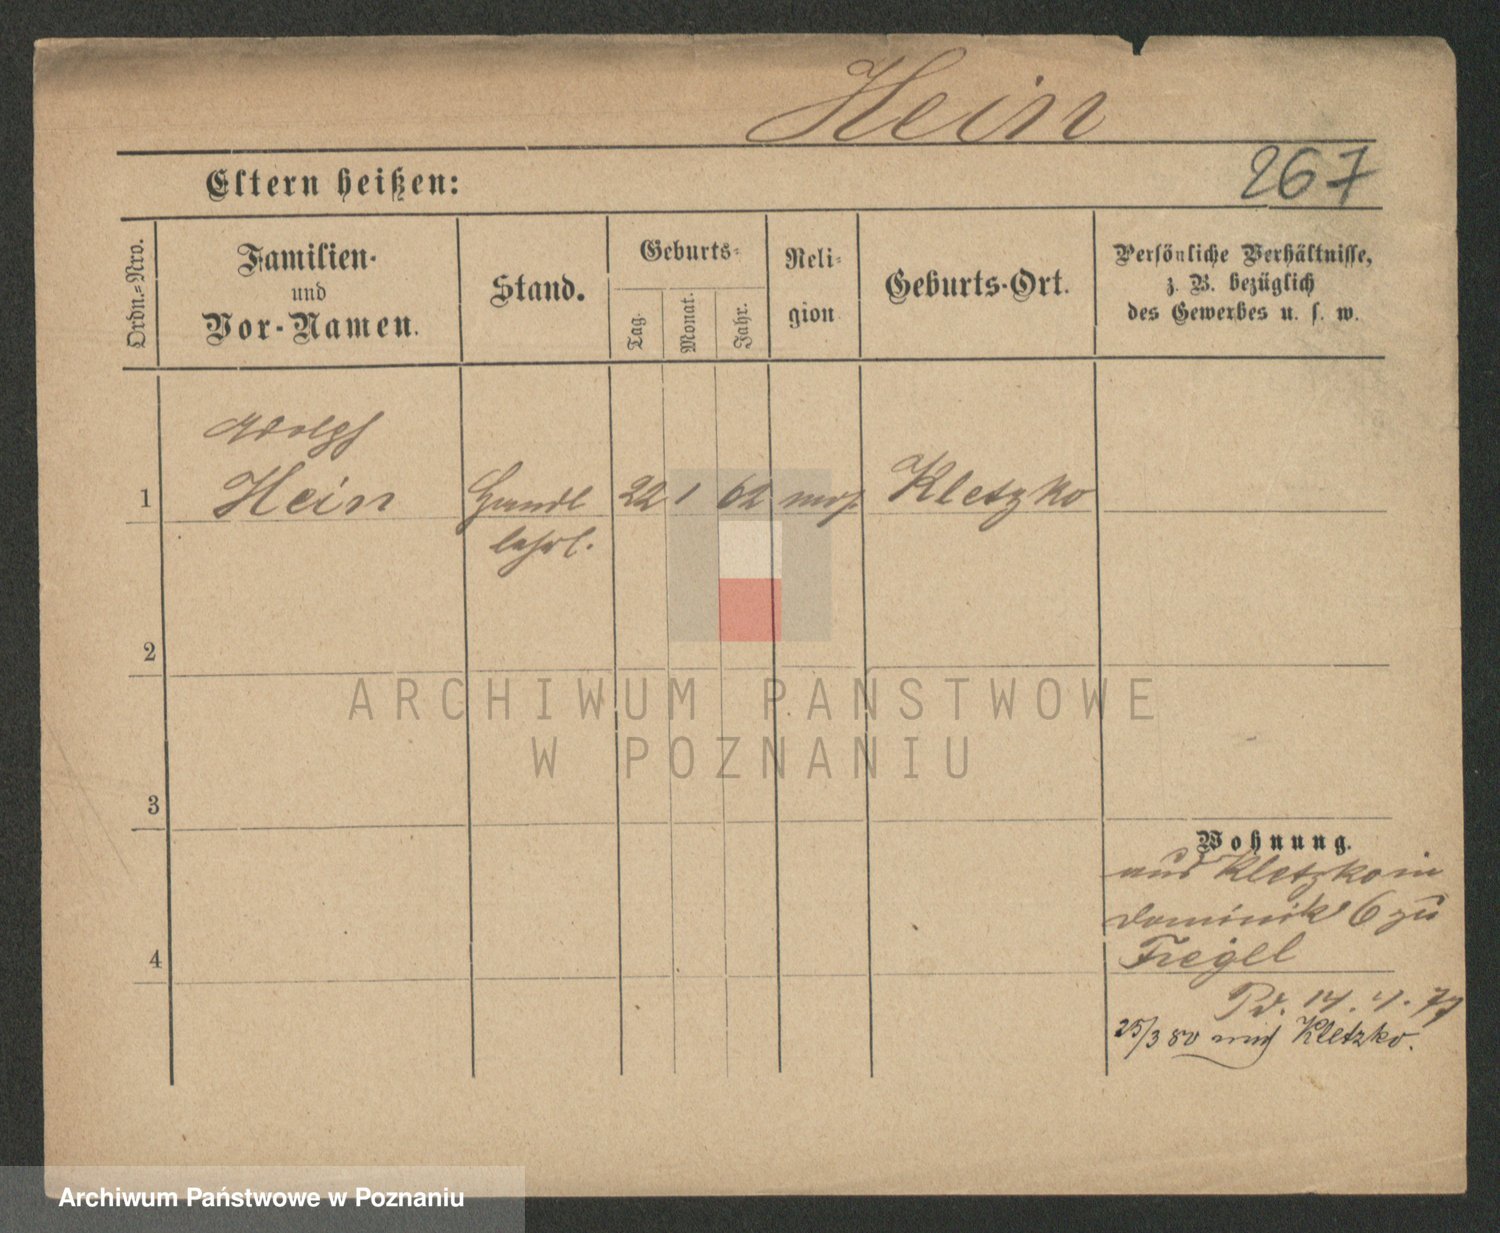 Hein
267
Eltern heißen:
Ordn.-Nro.
Familien-
und
Vor-Namen.
Stand.
Geburts-
Tag.
Monat.
Jahr.
Reli-
gion
Geburts-Ort.
Persönliche Verhältnisse,
z. B. bezüglich
des Gewerbes u. s. w.
Adolph
1 Hein Handl 22 1 62 mos. Kletzko
lehrl.
2
3
4
Wohnung.
aus Kletzko in
Dominik 6 zu
Fiegel
Pd. 14. 4. 77
25/3 80 nach Kletzko.
ARCHIWUM PAŃSTWOWE
W POZNANIU
Archiwum Państwowe w Poznaniu